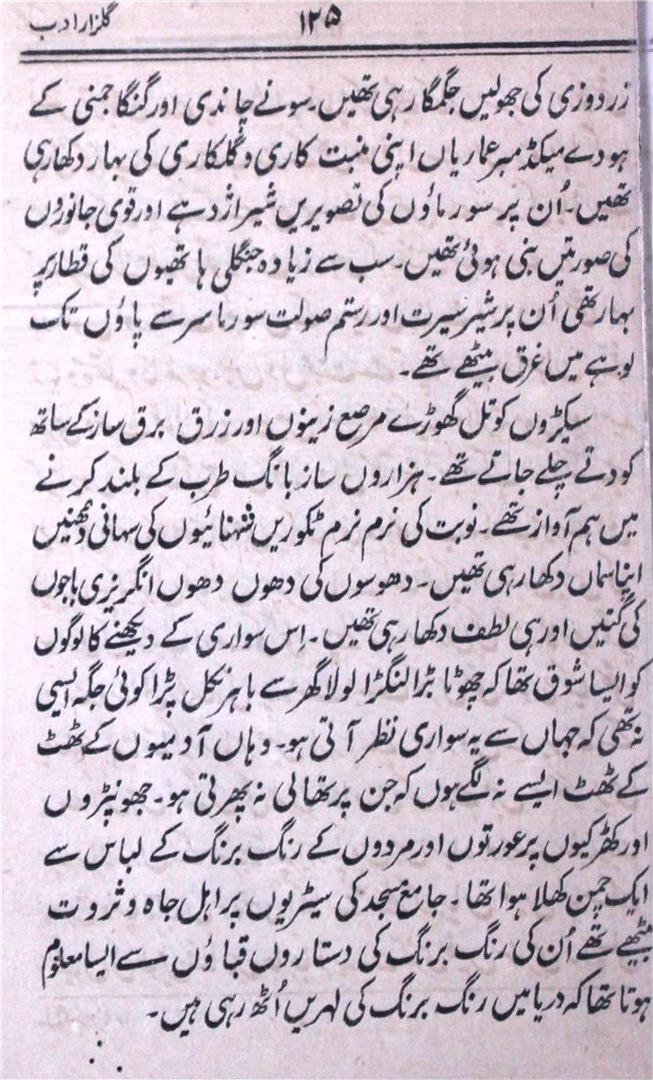 گلزار ادب
۱۲۵
زردوزی کی جھولیں جگمگا رہی تھیں۔ سونے چاندی اور گنگا جمنی کے
ہودے میکڈمبر عماریاں اپنی منبت کاری و گلکاری کی بہار دکھا رہی
تھیں۔ اُن پر سورماؤں کی تصویریں شیر اژدہے اور قوی جانوروں
کی صورتیں بنی ہوئی تھیں۔ سب سے زیادہ جنگلی ہاتھیوں کی قطار پر
بہار تھی اُن پر شیر سیرت اور رستم صولت سورما سر سے پاؤں تک
لوہے میں غرق بیٹھے تھے۔
سیکڑوں کوتل گھوڑے مرصع زینوں اور زرق برق ساز کے ساتھ
کودتے چلے جاتے تھے۔ ہزاروں ساز بانگ طرب کے بلند کرنے
میں ہم آواز تھے۔ نوبت کی نرم نرم ٹکوریں شہنائیوں کی سہانی دھنیں
اپنا سماں دکھا رہی تھیں۔ دھوسوں کی دھوں دھوں انگریزی باجوں
کی گتیں اور ہی لطف دکھا رہی تھیں۔ اِس سواری کے دیکھنے کا لوگوں
کو ایسا شوق تھا کہ چھوٹا بڑا لنگڑا لولا گھر سے باہر نکل پڑا کوئی جگہ ایسی
نہ تھی کہ جہاں سے یہ سواری نظر آتی ہو۔ وہاں آدمیوں کے ٹھٹ
کے ٹھٹ ایسے نہ لگے ہوں کہ جن پر تھالی نہ پھرتی ہو۔ جھونپڑوں
اور کھڑکیوں پر عورتوں اور مردوں کے رنگ برنگ کے لباس سے
ایک چمن کھلا ہوا تھا۔ جامع مسجد کی سیڑیوں پر اہل جاہ و ثروت
بیٹھے تھے اُن کی رنگ برنگ کی دستاروں قباؤں سے ایسا معلوم
ہوتا تھا کہ دریا میں رنگ برنگ کی لہریں اُٹھ رہی ہیں۔